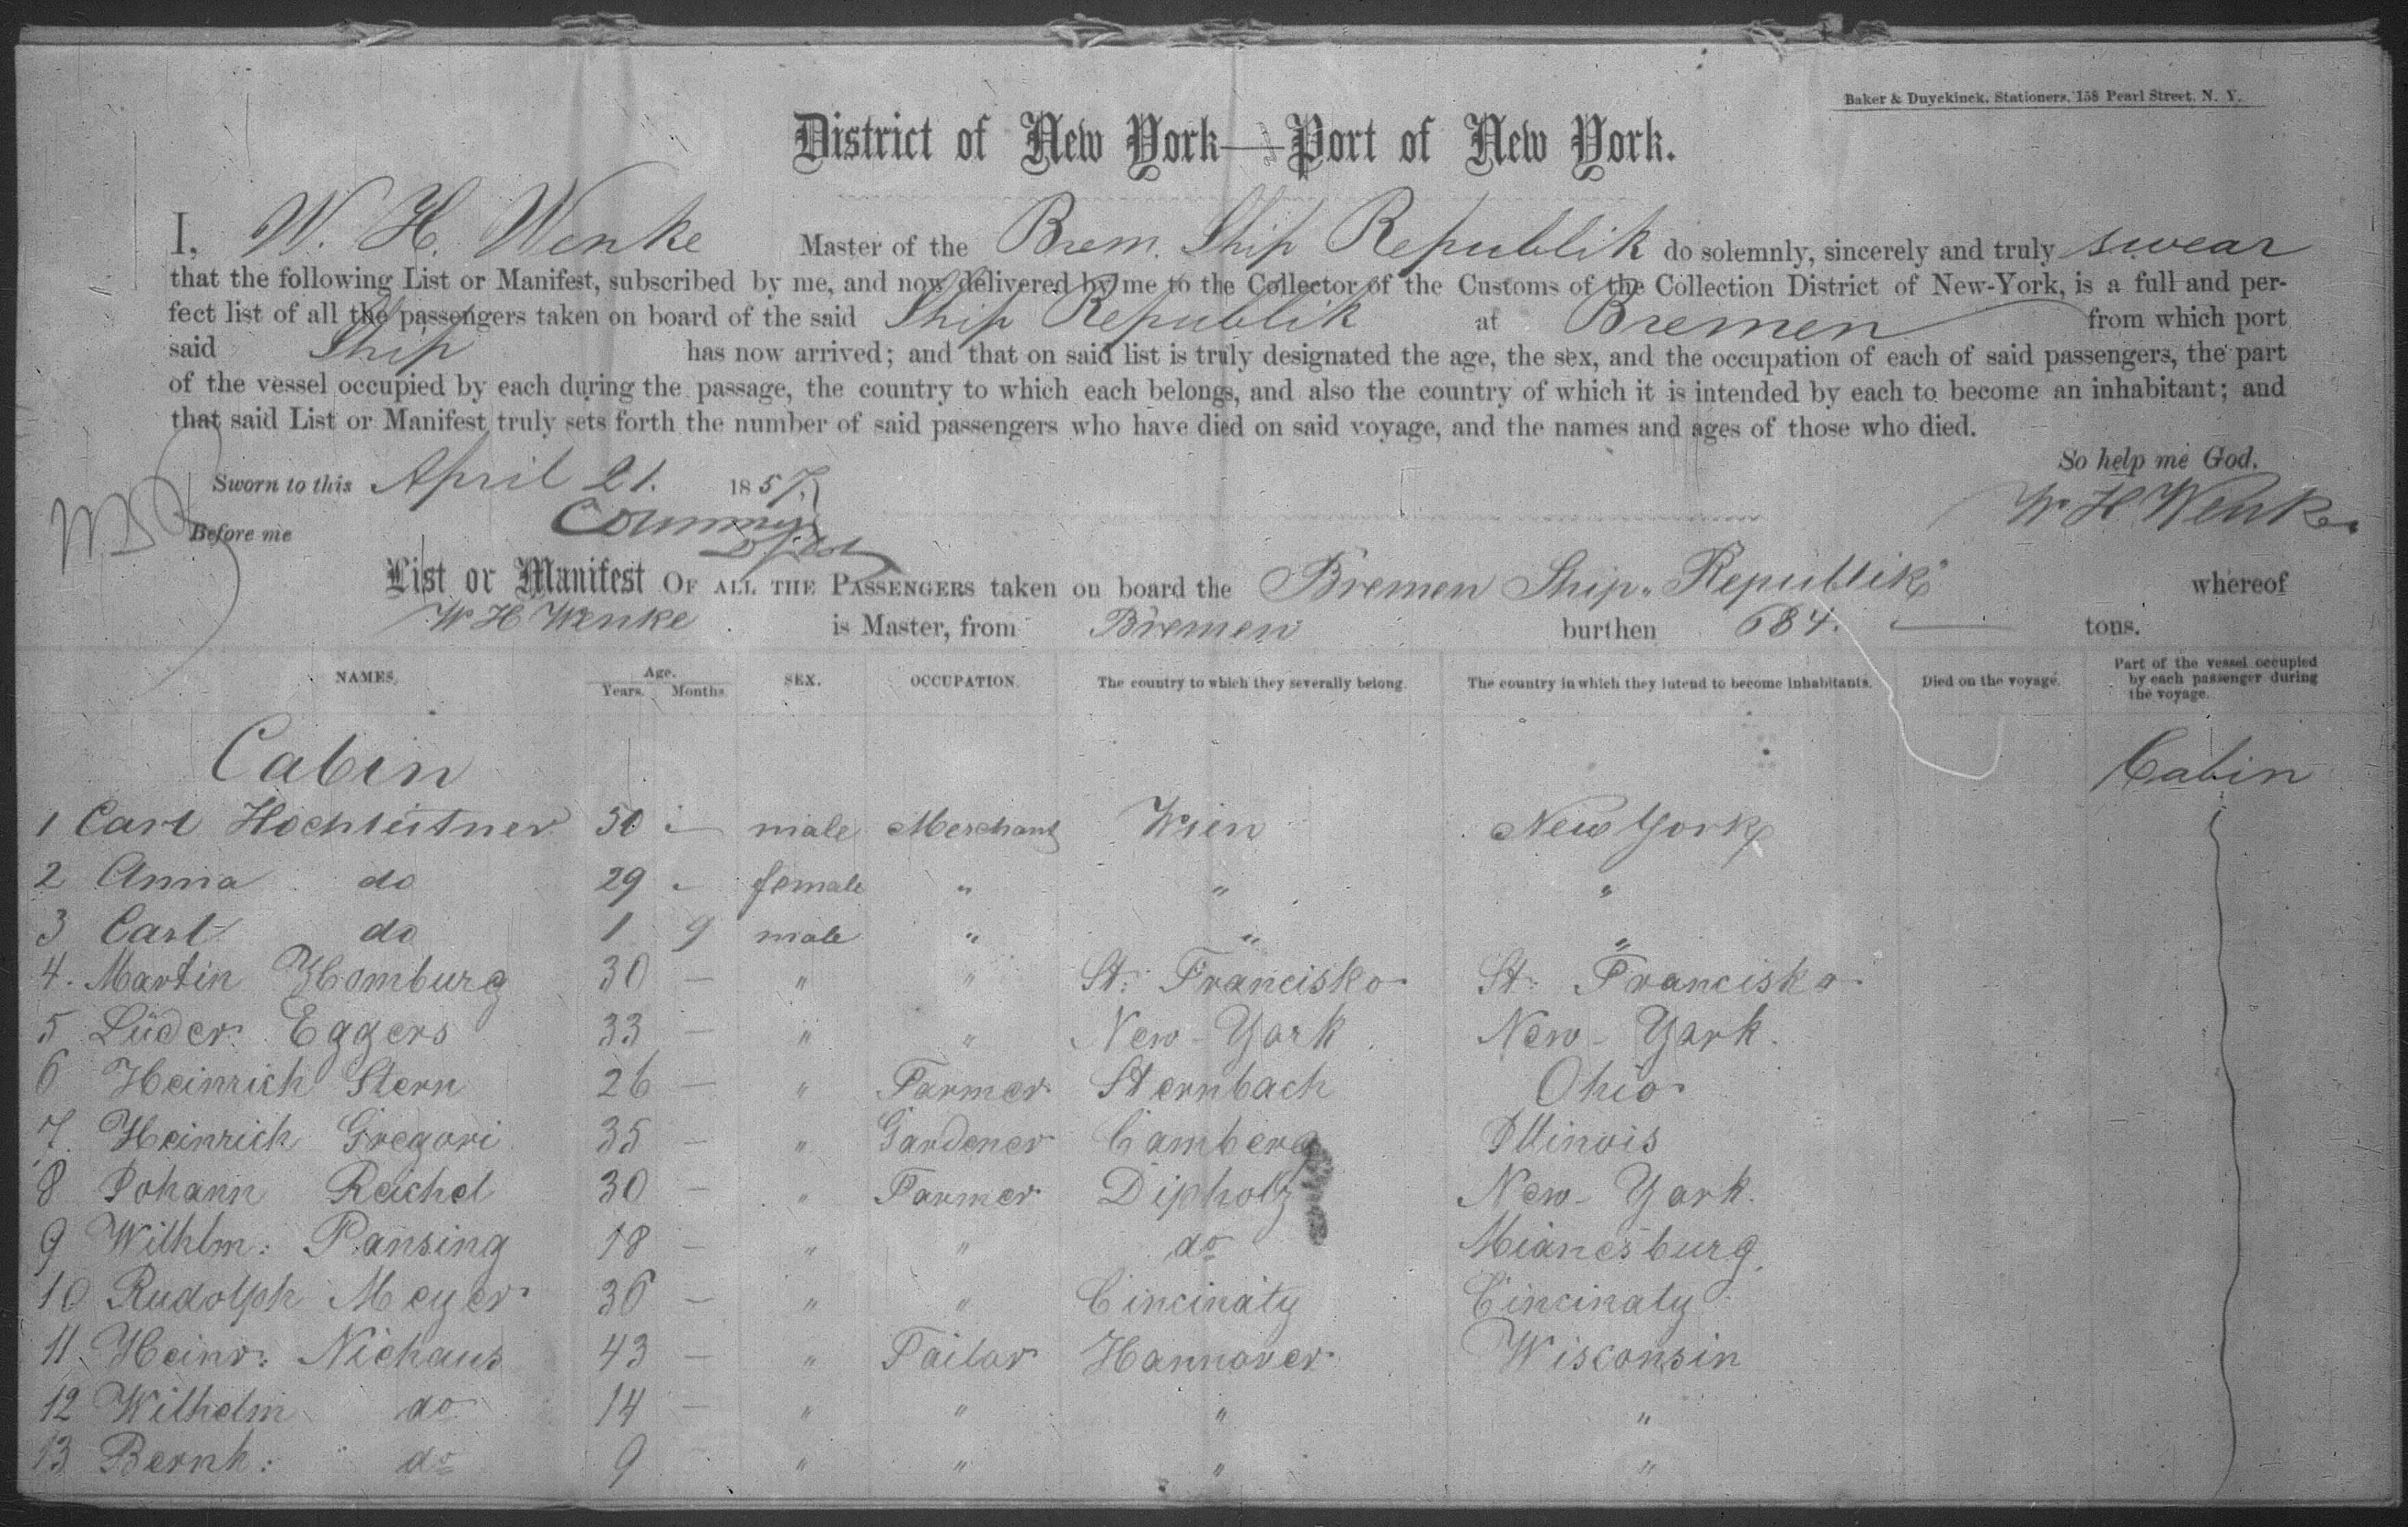 Baker & Duyckinck, Stationers, 158 Pearl Street, N. Y.
District of New York—Port of New York.
I, W. H. Wenke Master of the Brem. Ship Republik do solemnly, sincerely and truly swear
that the following List or Manifest, subscribed by me, and now delivered by me to the Collector of the Customs of the Collection District of New-York, is a full and per-
fect list of all the passengers taken on board of the said Ship Republik at Bremen from which port
said Ship has now arrived; and that on said list is truly designated the age, the sex, and the occupation of each of said passengers, the part
of the vessel occupied by each during the passage, the country to which each belongs, and also the country of which it is intended by each to become an inhabitant; and
that said List or Manifest truly sets forth the number of said passengers who have died on said voyage, and the names and ages of those who died.
So help me God.
Sworn to this April 21. 1857.
W. H. Wenke
Before me
List or Manifest OF ALL THE PASSENGERS taken on board the Bremen Ship "Republik" whereof
W H Wenke is Master, from Bremen burthen 684. tons.
NAMES. Age. Years. Months. SEX. OCCUPATION. The country to which they severally belong. The country in which they intend to become inhabitants. Died on the voyage. Part of the vessel occupied by each passenger during the voyage.
Cabin Cabin
1 Carl Hochleitner 50 - male Merchant Wien New York
2 Anna do 29 - female " " "
3 Carl do 1 9 male " " "
4. Martin Homburg 30 — " " St: Francisko St: Francisko
5 Lüder Eggers 33 — " " New-York New-York.
6 Heinrich Stern 26 — " Farmer Sternbach Ohio
7. Heinrich Gregori 35 — " Gardener Camberg Illinois
8 Johann Reichel 30 — " Farmer Dipholz New-York.
9 Wilhlm: Pansing 18 — " " do Mianesburg.
10 Rudolph Meyer 36 — " " Cincinaty Cincinaty
11. Heinr: Niehaus 43 — " Tailor Hannover Wisconsin
12 Wilhelm do 14 — " " " "
13 Bernh: do 9 " " " "